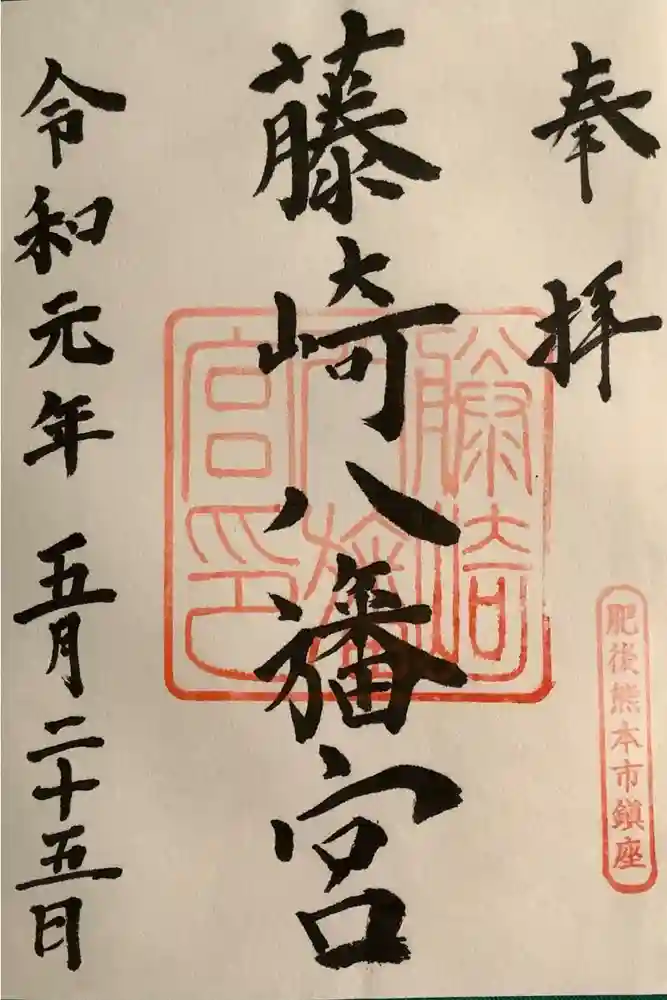 奉拝
肥後熊本市鎮座
藤崎八旛宮
藤崎八旛宮印
令和元年 五月二十五日